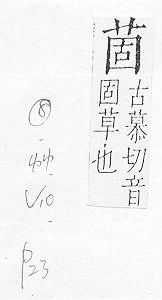 茵
古慕切音
固草也
⑧
艸
V10
P23